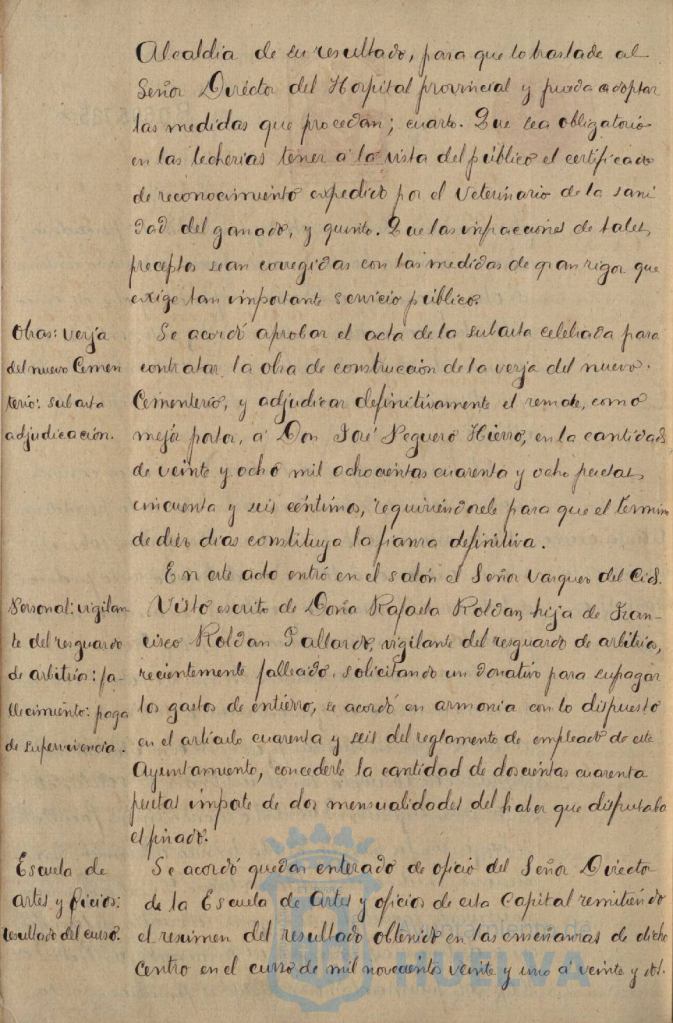 Alcaldia de su resultado, para que lo traslade al
Señor Diréctor del Hospital provincial y pueda adoptar
las medidas que procedan; cuarto. Que sea obligatorio
en las lecherias tener á la vista del público el certificado
de reconocimiento expedido por el Veterinario de la sani
dad del ganado, y quinto. Que las infracciones de tales
preceptos sean corregidas con las medidas de gran rigor que
exige tan importante servicio público.
Obras: verja
del nuevo Cemen
terio: subasta
adjudicación.
Se acordó aprobar el acta de la subasta celebrada para
contratar la obra de construcción de la verja del nuevo
Cementerio, y adjudicar definitivamente el remate, como
mejor postor, á Don José Seguero Hierro, en la cantidad
de veinte y ochó mil ochocientas cuarenta y ocho pesetas
cincuenta y seis céntimos, requiriéndosele para que el término
de diéz dias constituya la fianza definitiva.
En este acto entró en el salón el Señor Vazquez del Cid.
Personal: vigilan
te del resguardo
de arbitrios: fa-
llecimiento: paga
de supervivencia.
Visto escrito de Doña Rafaela Roldan, hija de Fran-
cisco Roldan Gallardo, vigilante del resguardo de arbitrios,
recientemente fallecido, solicitando un donativo para sufragar
los gastos de entierro, se acordó en armonia con lo dispuesto
en el artículo cuarenta y seis del reglamento de empleados de este
Ayuntamiento, concederle la cantidad de doscientas cuarenta
pesetas importe de dos mensualidades del haber que disfrutaba
el finado.
Escuela de
artes y oficios:
resultado del curso.
Se acordó quedar enterado de oficio del Señor Director
de la Escuela de Artes y oficios de esta Capital remitiendo
el resumen del resultado obtenido en las enseñanzas de dicho
Centro en el curso de mil novecientos veinte y uno á veinte y dos.
HUELVA